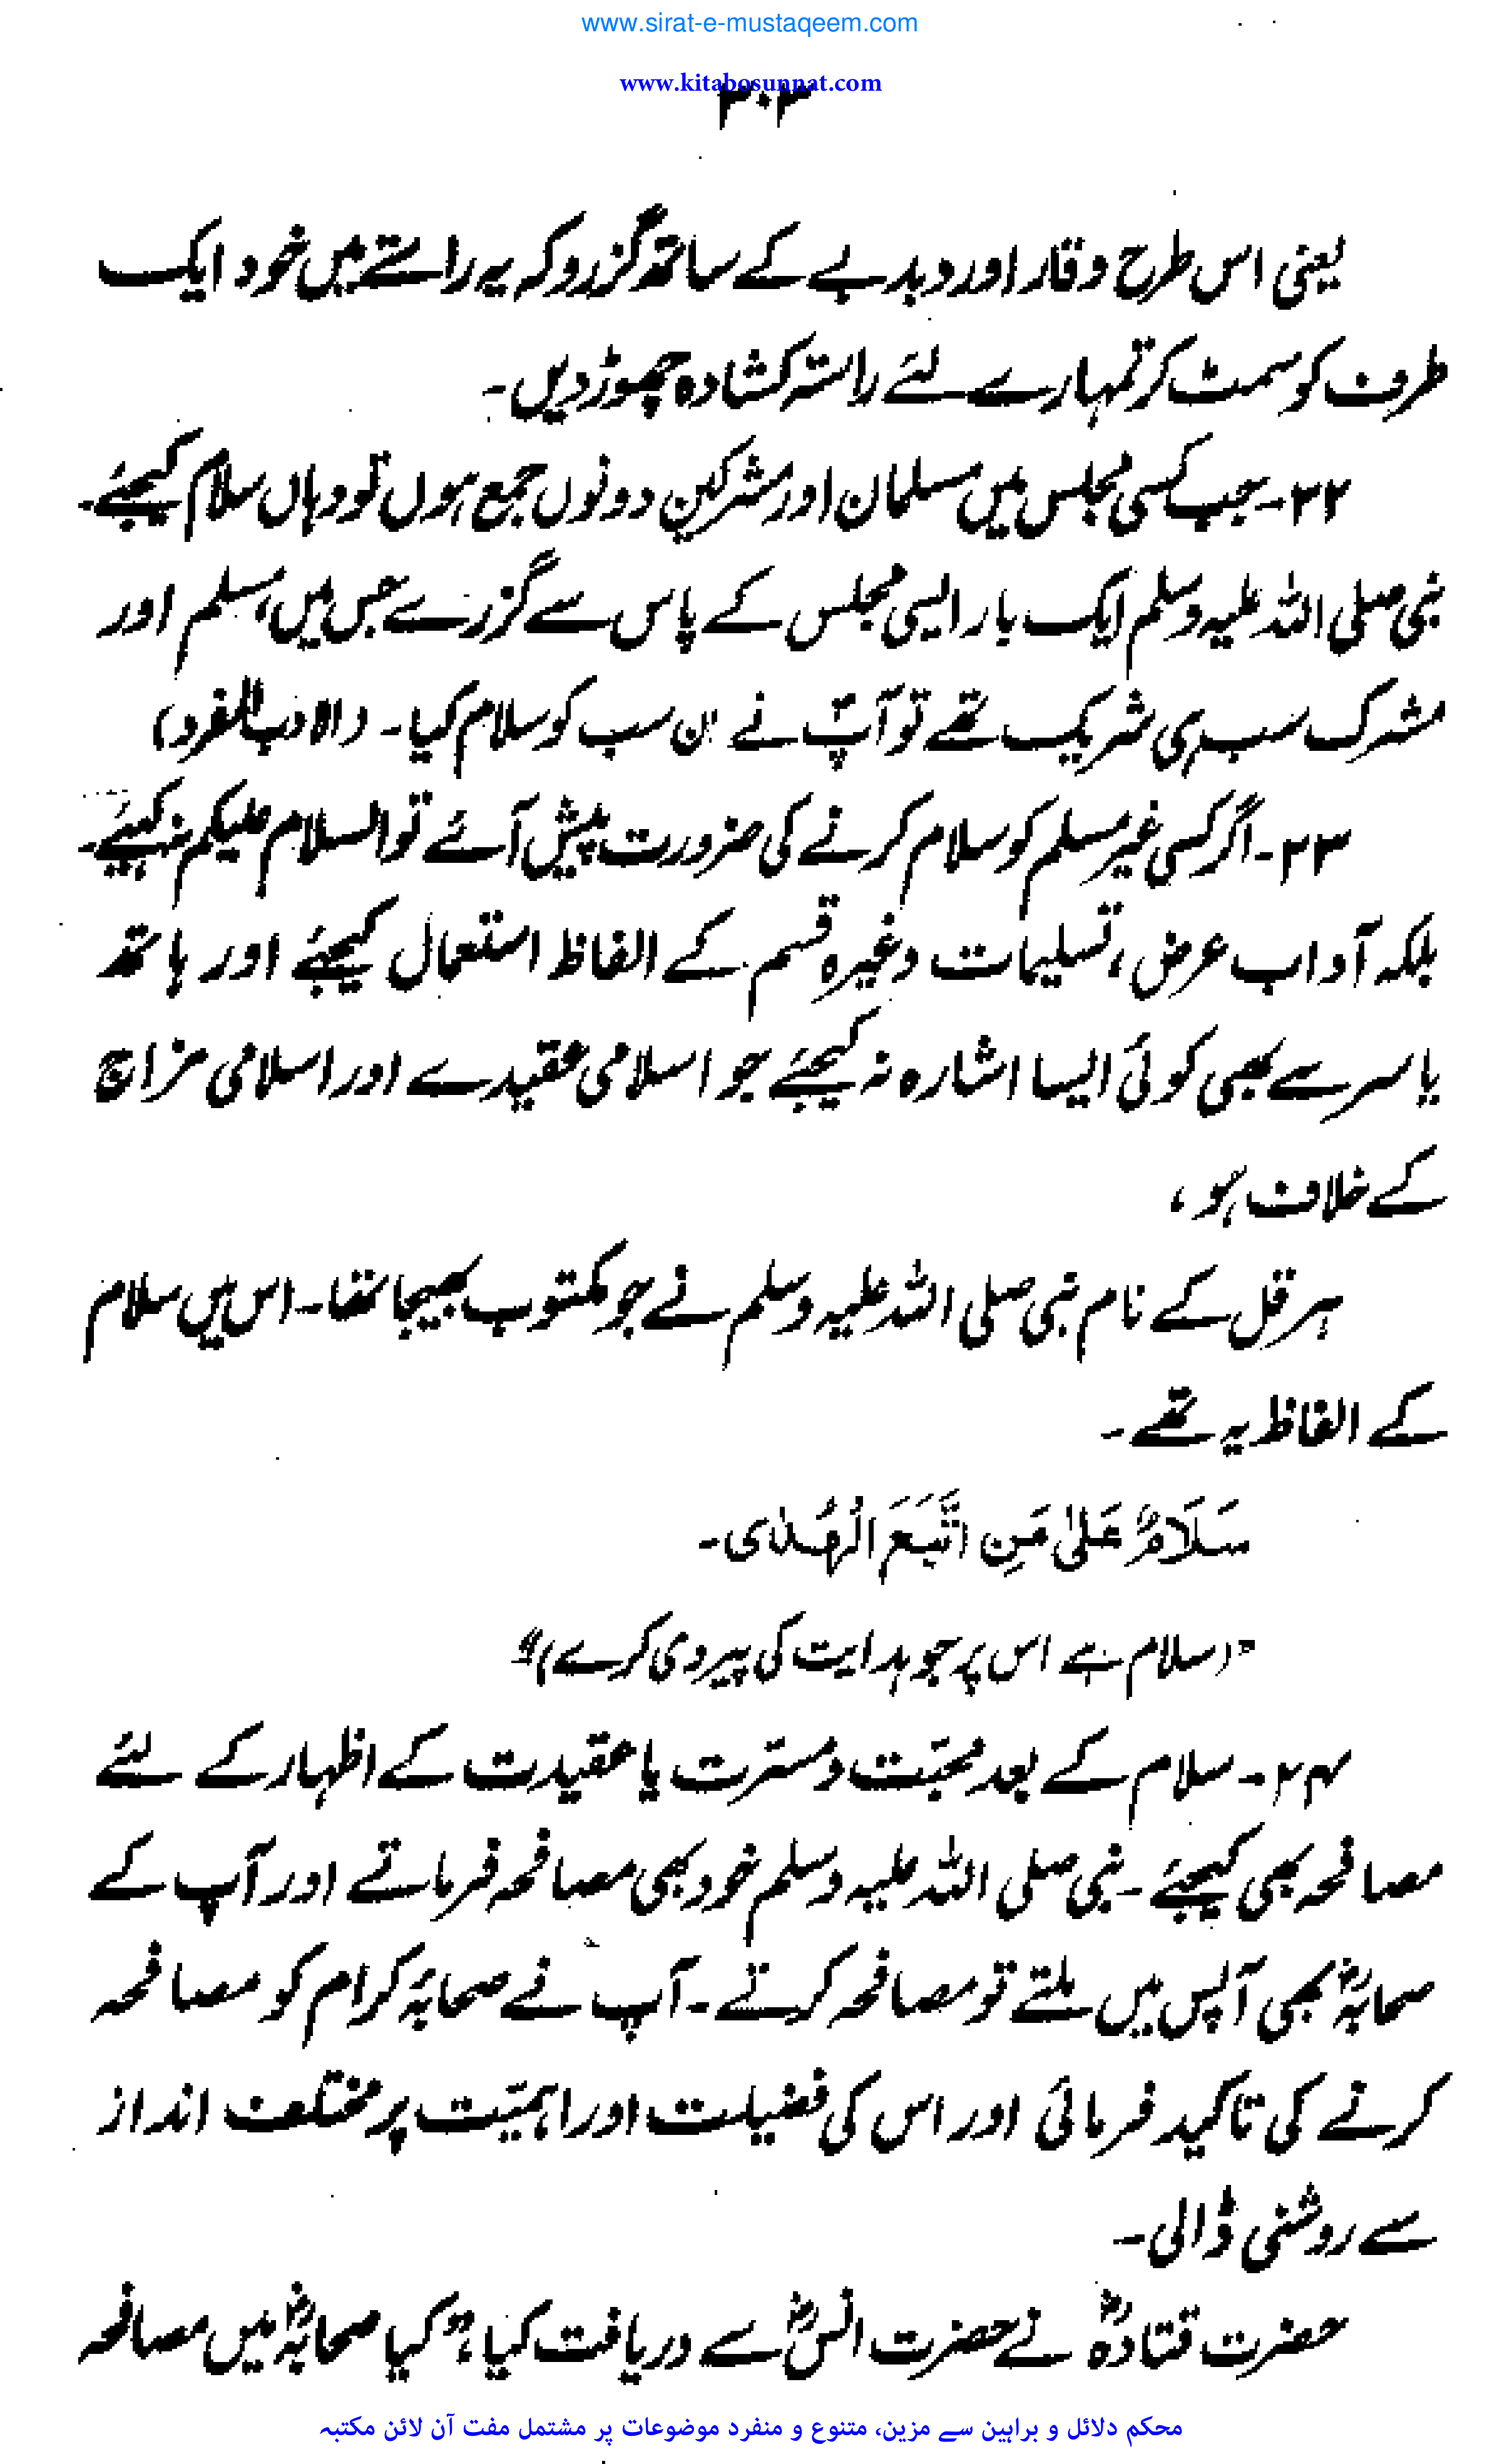 www.sirat-e-mustaqeem.com
www.kitabosunnat.com
۳۰۳
یعنی اس طرح وقار اور دبدبے کے ساتھ گزرو کہ یہ راستے میں خود ایک
طرف کو سمٹ کر تمہارے لئے راستہ کشادہ چھوڑ دیں۔
۲۲۔ جب کسی مجلس میں مسلمان اور مشرکین دونوں جمع ہوں تو وہاں سلام کیجئے۔
نبی صلی اللہ علیہ وسلم ایک بار ایسی مجلس کے پاس سے گزرے جس میں، مسلم اور
مشرک سب ہی شریک تھے تو آپؐ نے ان سب کو سلام کیا۔ (الادب المفرد)
۲۳۔ اگر کسی غیر مسلم کو سلام کرنے کی ضرورت پیش آئے تو السلام علیکم نہ کہیئے۔
بلکہ آداب عرض، تسلیمات وغیرہ قسم کے الفاظ استعمال کیجئے اور ہاتھ
یا سر سے بھی کوئی ایسا اشارہ نہ کیجئے جو اسلامی عقیدے اور اسلامی مزاج
کے خلاف ہو،
ہرقل کے نام نبی صلی اللہ علیہ وسلم نے جو مکتوب بھیجا تھا۔ اس میں سلام
کے الفاظ یہ تھے۔
سَلَامٌ عَلیٰ مَنِ اتَّبَعَ الْهُدٰی۔
"(سلام ہے اس پر جو ہدایت کی پیروی کرے)"
۲۴۔ سلام کے بعد محبّت و مسرّت یا عقیدت کے اظہار کے لئے
مصافحہ بھی کیجئے۔ نبی صلی اللہ علیہ وسلم خود بھی مصافحہ فرماتے اور آپ کے
صحابہؓ بھی آپس میں ملتے تو مصافحہ کرتے۔ آپ نے صحابۂ کرام کو مصافحہ
کرنے کی تاکید فرمائی اور اس کی فضیلت اور اہمیّت پر مختلف انداز
سے روشنی ڈالی۔
حضرت قتادہؓ نے حضرت انسؓ سے دریافت کیا، "کیا صحابہؓ میں مصافحہ
محکم دلائل و براہین سے مزین، متنوع و منفرد موضوعات پر مشتمل مفت آن لائن مکتبہ